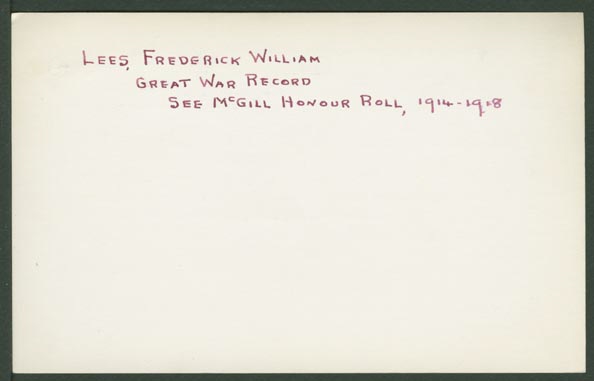 LEES, FREDERICK WILLIAM
GREAT WAR RECORD
SEE McGILL HONOUR ROLL, 1914-1918